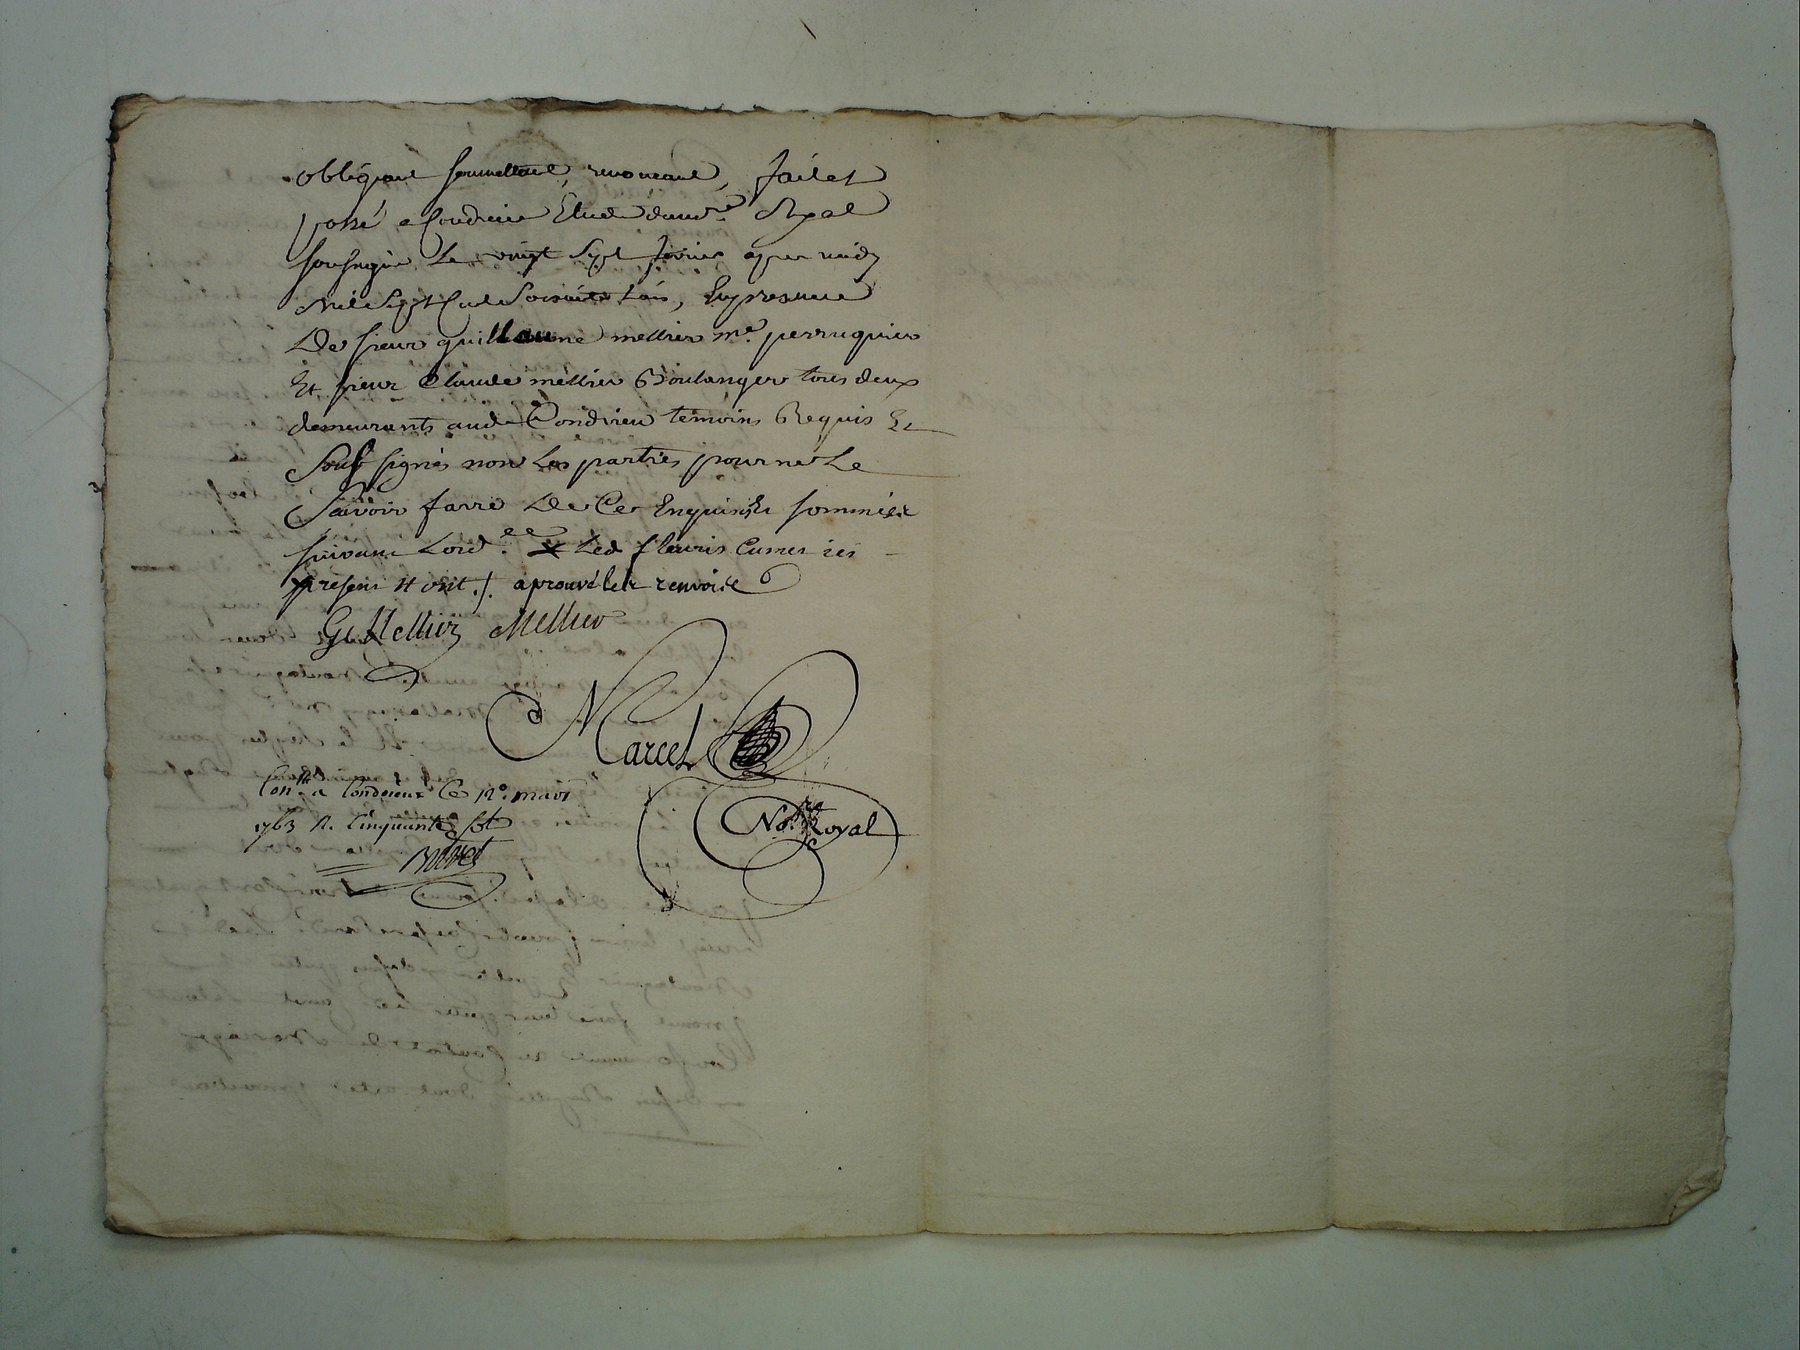 obligeant soumettant, renonceant, fait et
passé a Condrieu Etude dund. re Royal
soussigné Le vingt Sept fevrier apres midy
Mil Sept Cent Soixante trois, En presence
De sieur guillaume mellier me. perruquier
Et sieur Claude mellier Boulanger tous deux
demeurants aud. Condrieu temoins Requis Et
Soussignés non Les parties pour ne Le
Scavoir faire De Ce Enquis Et sommées
suivant Lord. ce x Led fleuris Cumer ici
present Et ont ./. aprouvé les renvois
G. Mellier Mellier
Marcel
Not.re Royal
Con.llé a Condrieux Ce 12e. mars
1763 R. Cinquante sol